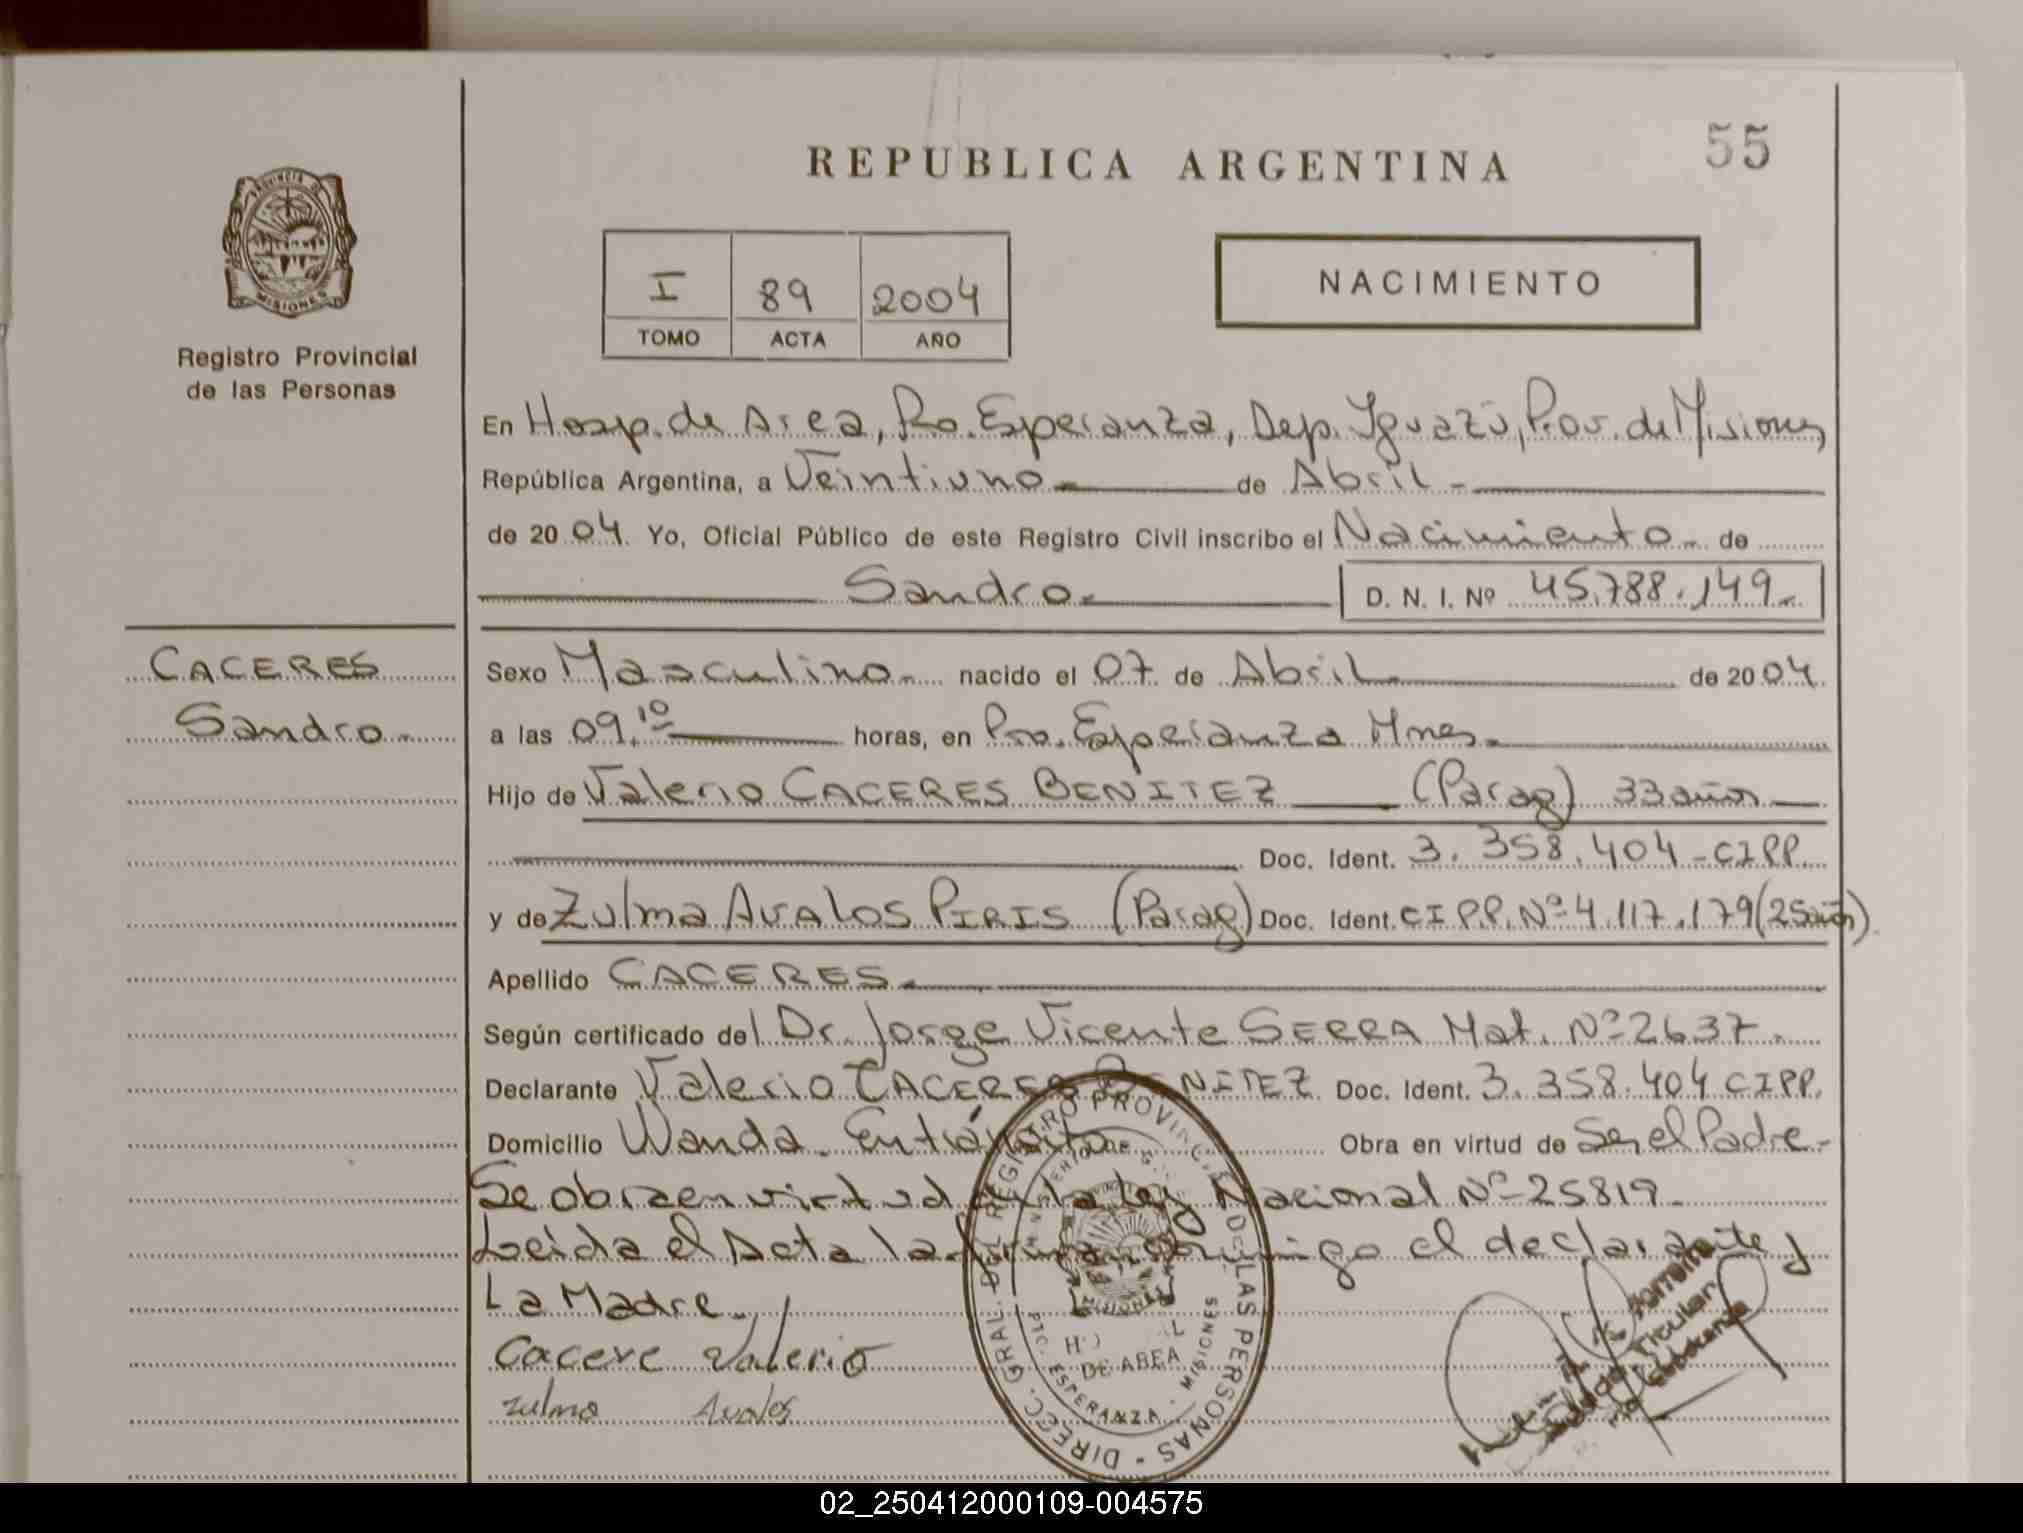 REPUBLICA ARGENTINA
55
PROVINCIA DE
MISIONES
Registro Provincial
de las Personas
I 89 2004
TOMO ACTA AÑO
NACIMIENTO
En Hosp. de Area, Pto. Esperanza, Dep. Iguazú, Prov. de Misiones
República Argentina, a Veintiuno de Abril
de 2004. Yo, Oficial Público de este Registro Civil inscribo el Nacimiento de
Sandro D. N. I. Nº 45.788.149
CACERES
Sandro
Sexo Masculino nacido el 07 de Abril de 2004
a las 09.10 horas, en Pto. Esperanza Mnes.
Hijo de Valerio CACERES BENITEZ (Parag) 33 años
Doc. Ident. 3.358.404 - CIPP.
y de Zulma AVALOS PIRIS (Parag) Doc. Ident. CIPP. Nº 4.117.179 (25 años).
Apellido CACERES.
Según certificado del Dr. Jorge Vicente SERRA Mat. Nº 2637.
Declarante Valerio CACERES BENITEZ Doc. Ident. 3.358.404 CIPP.
Domicilio Wanda. Obra en virtud de Ser el Padre-
Se obra en virtud de la ley Nacional Nº 25819-
Leida el Acta la firman conmigo el declarante y
La Madre.
Cacere Valerio
Zulma Avalos
DIREC. GRAL. DEL REGISTRO PROVINCIAL DE LAS PERSONAS
DE AREA
PTO. ESPERANZA - MISIONES
Titular
02_250412000109-004575